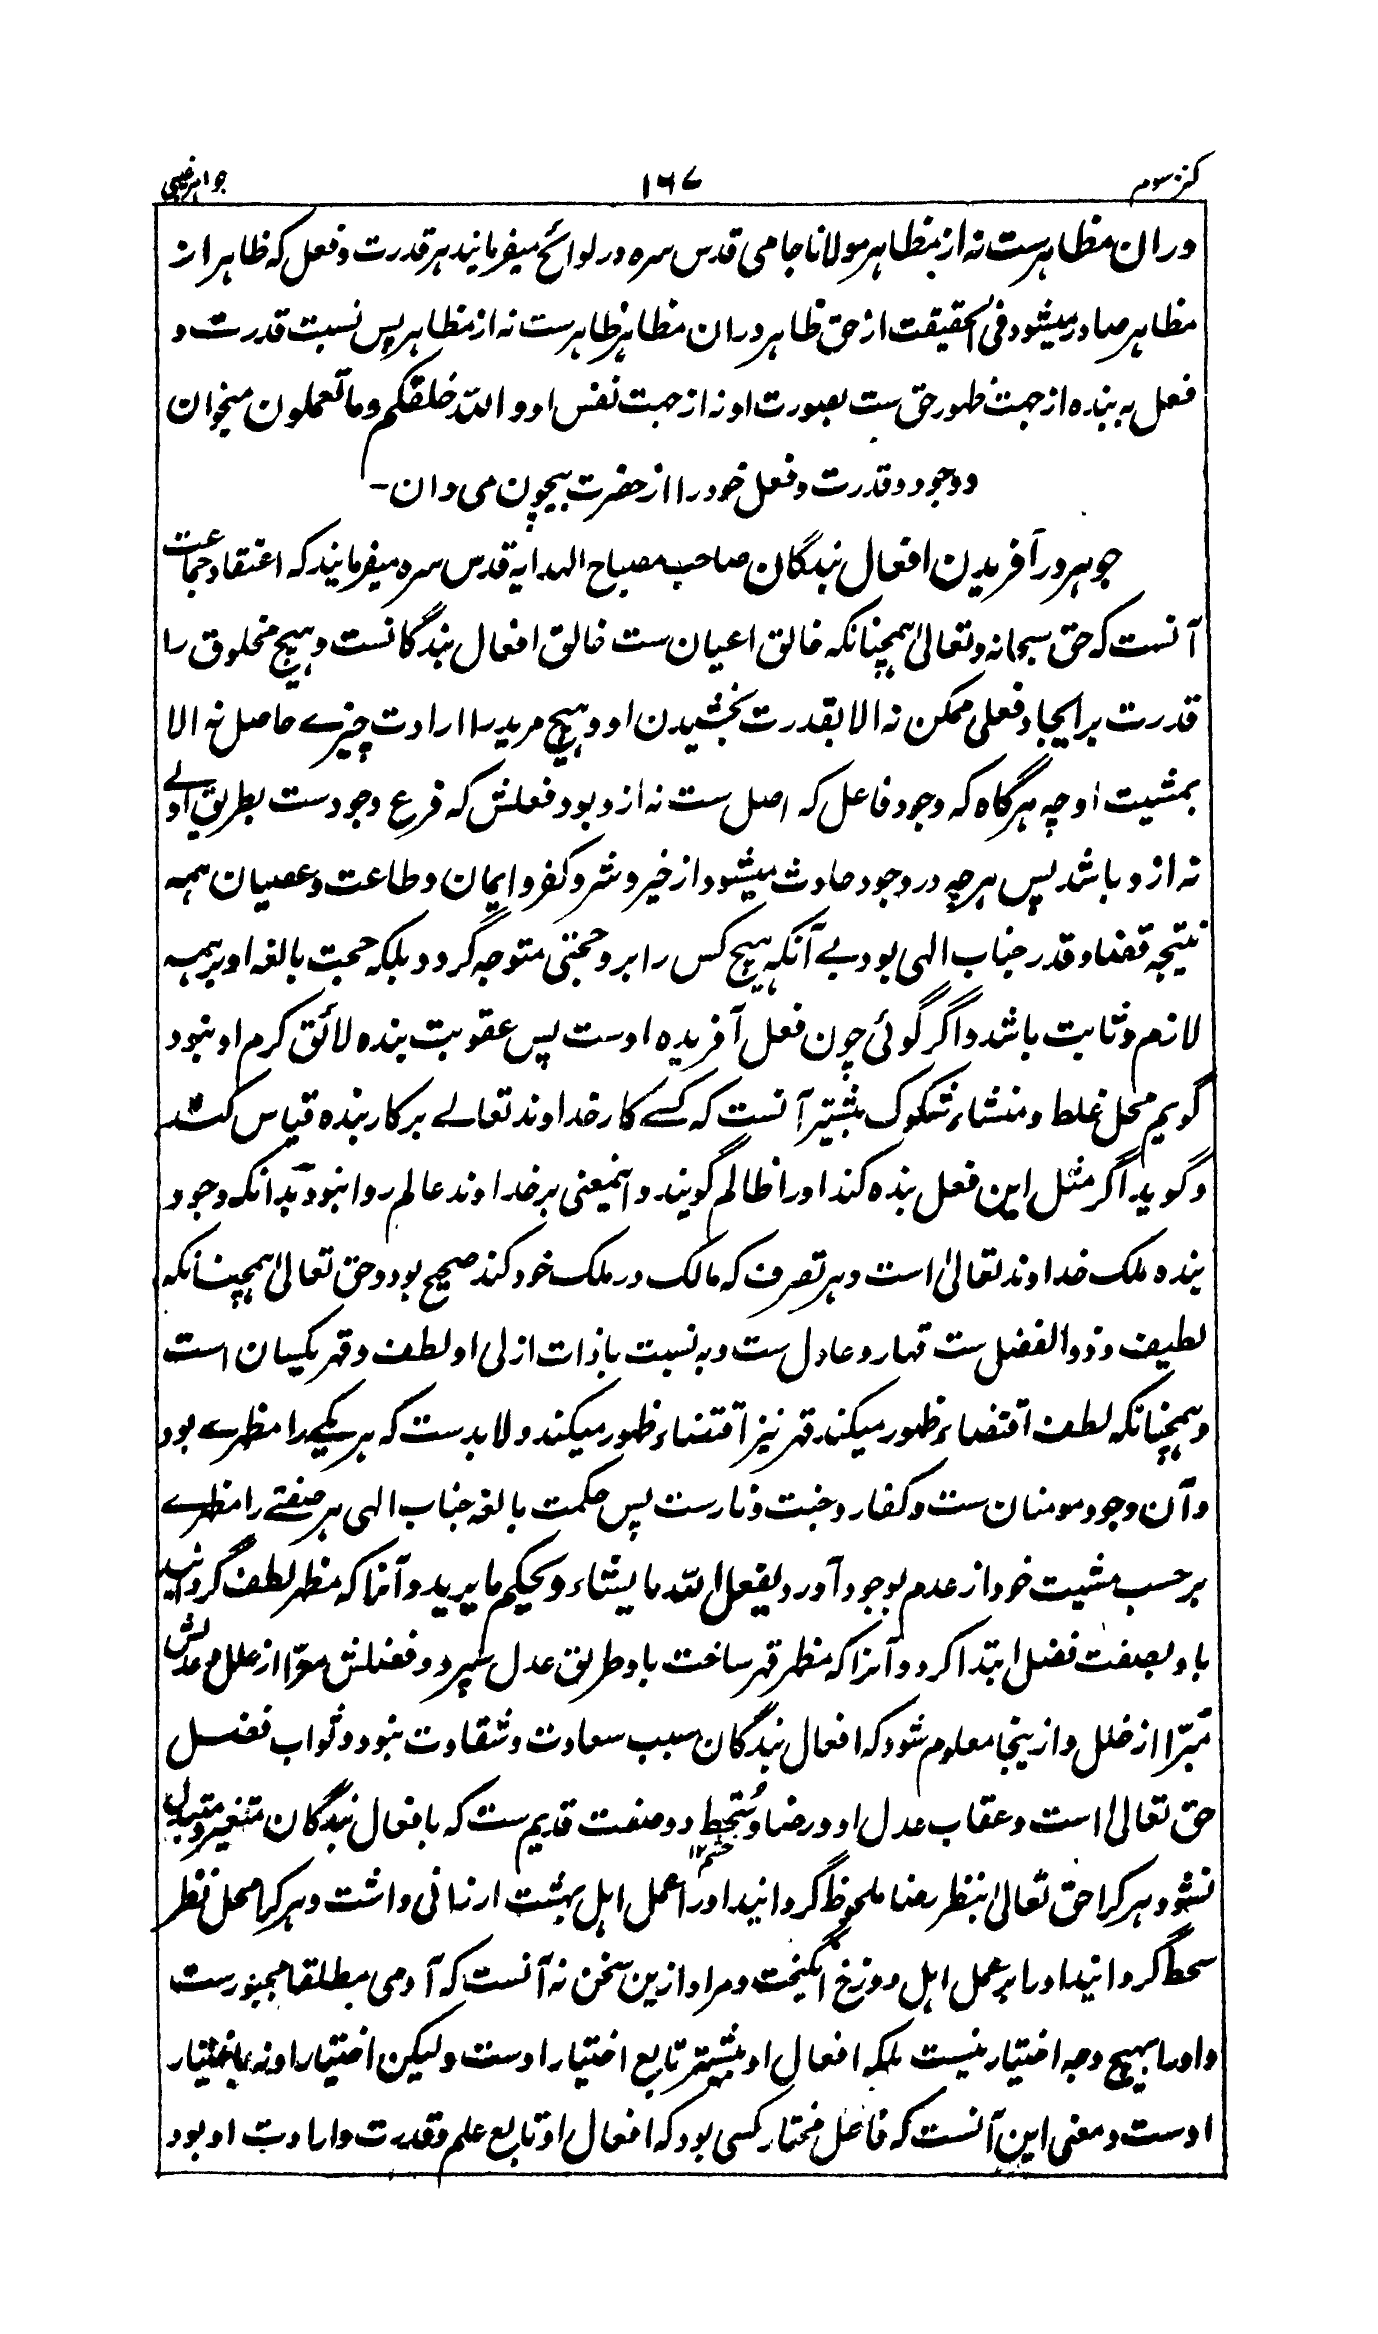 کنز سوم ۱۶۷ جواهر غیبی
در ان مظاهرست نه از مظاهر مولانا جامی قدس سره در لوائح میفرمایند هر قدرت و فعل که ظاهر از
مظاهر صادر میشود فی الحقیقت از حق ظاهر در ان مظاهر ظاهرست نه از مظاهر پس نسبت قدرت و
فعل به بنده از جهت ظهور حق ست بصورت او نه از جهت نفس او و الله خلقکم وما تعملون میخوان
و وجود و قدرت و فعل خود را از حضرت بیچون می دان -
جوهر در آفریدن افعال بندگان صاحب مصباح الهدایه قدس سره میفرمایند که اعتقاد جماعت
آنست که حق سبحانه و تعالیٰ همچنانکه خالق اعیان ست خالق افعال بندگانست و هیچ مخلوق را
قدرت بر ایجاد فعلی ممکن نه الا بقدرت بخشیدن او و هیچ مرید را ارادت چیزے حاصل نه الا
بمشیت او چه هرگاه که وجود فاعل که اصل ست نه ازو بود فعلش که فرع وجودست بطریق اولے
نه ازو باشد پس هرچه در وجود حادث میشود از خیر و شر و کفر و ایمان و طاعت و عصیان همه
نتیجه قضا و قدر جناب الهی بود بے آنکه هیچ کس را برو حجتی متوجه گردد بلکه حجت بالغه او بر همه
لازم و ثابت باشد و اگر گوئی چون فعل آفریده اوست پس عقوبت بنده لائق کرم او نبود
گویم محل غلط و منشاء شکوک بیشتر آنست که کسے کار خداوند تعالے بر کار بنده قیاس کند
و گوید اگر مثل این فعل بنده کند او را ظالم گویند و اینمعنی بر خداوند عالم روا نبود بدانکه وجود
بنده ملک خداوند تعالیٰ است و هر تصرف که مالک در ملک خود کند صحیح بود و حق تعالیٰ همچنانکه
لطیف و ذو الفضل ست قهار و عادل ست و به نسبت با ذات ازلی او لطف و قهر یکسان است
و همچنانکه لطف اقتضاء ظهور میکند قهر نیز اقتضاء ظهور میکند و لابدست که هر یکے را مظهرے بود
و آن وجود مومنان ست و کفار و جنت و نارست پس حکمت بالغه جناب الهی هر صفتے را مظهرے
بر حسب مشیت خود از عدم بوجود آورد یفعل الله ما یشاء و یحکم ما یرید و آنرا که مظهر لطف گردانید
باو بصفت فضل ابتدا کرد و آنرا که مظهر قهر ساخت باو طریق عدل سپرد و فضلش معرّا از علل و عدلش
مبرّا از خلل و ازینجا معلوم شود که افعال بندگان سبب سعادت و شقاوت نبود و ثواب فضل
حق تعالیٰ است و عقاب عدل او و رضا و سُخط دو صفت قدیم ست که بافعال بندگان متغیر و متبدل
خشم ۱۲
نشود هر کرا حق تعالیٰ بنظر رضا ملحوظ گردانید او را عمل اهل بهشت ارزانی داشت و هر کرا محل نظر
سخط گردانید او را بر عمل اهل دوزخ انگیخت و مراد ازین سخن نه آنست که آدمی مطلقا مجبورست
و او را بهیچ وجه اختیار نیست بلکه افعال او بیشتر تابع اختیار اوست و لیکن اختیار او نه باختیار
اوست و معنی این آنست که فاعل مختار کسی بود که افعال او تابع علم و قدرت و ارادت او بود